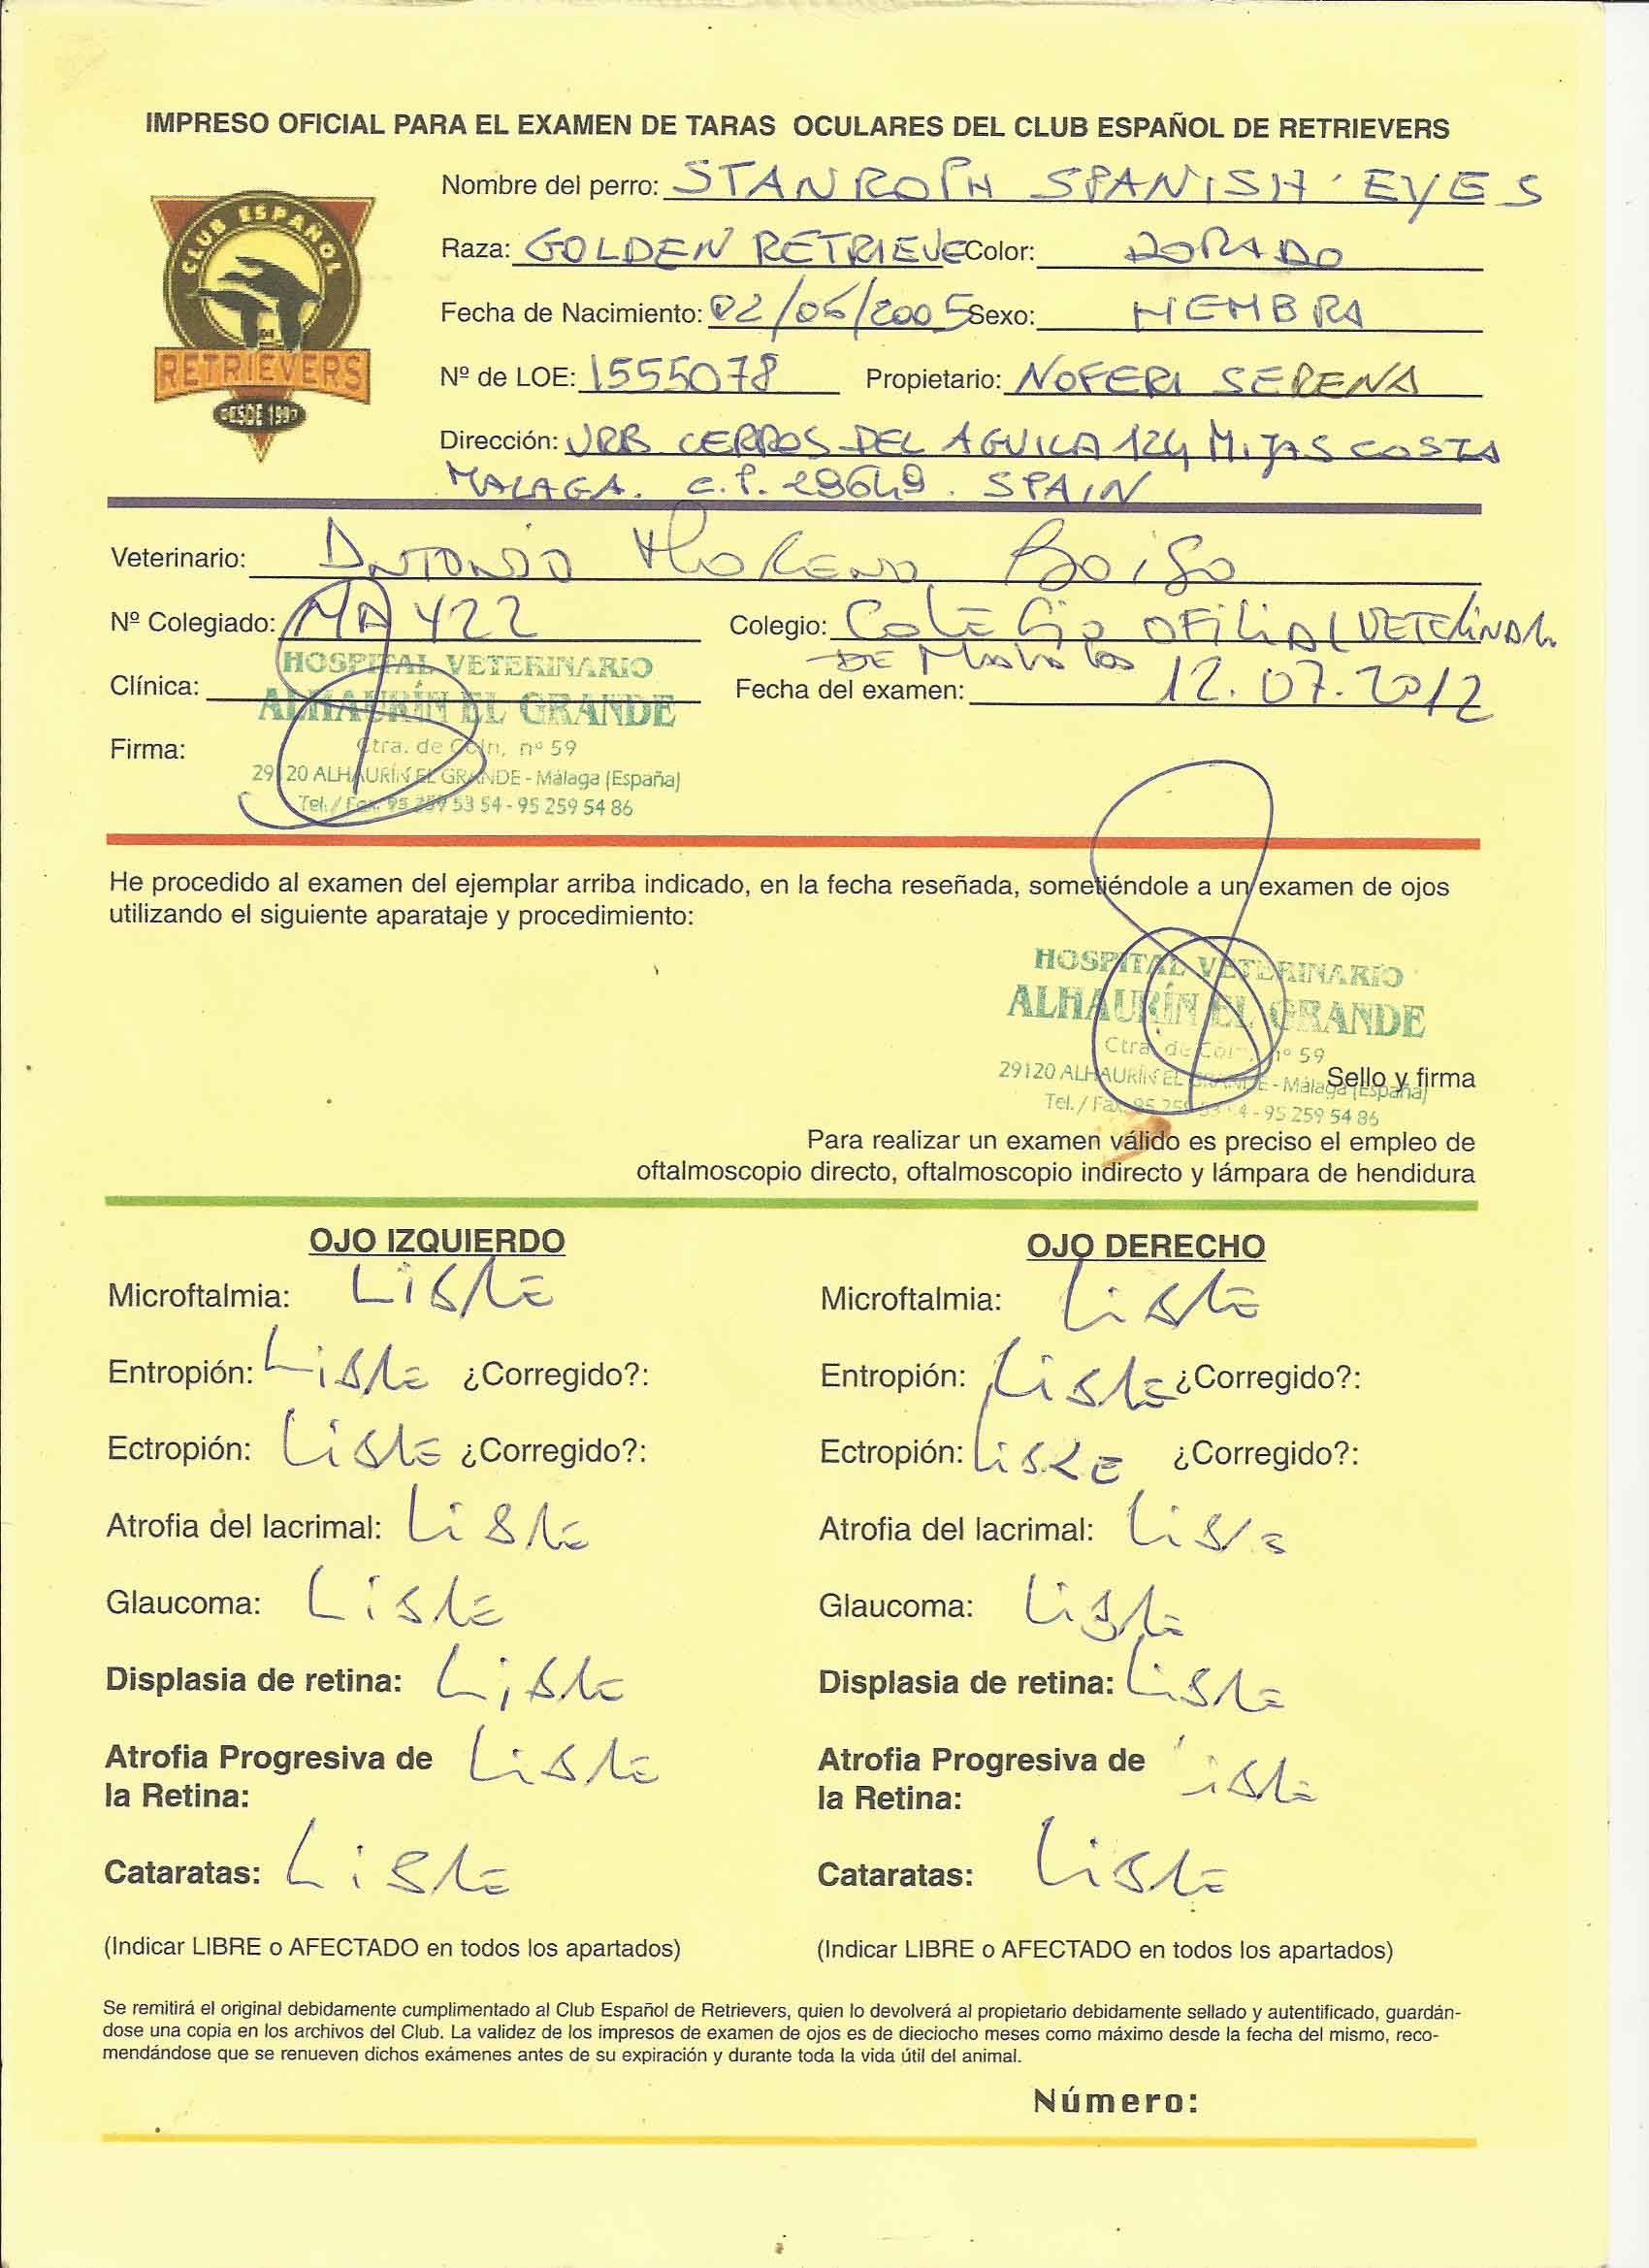 IMPRESO OFICIAL PARA EL EXAMEN DE TARAS OCULARES DEL CLUB ESPAÑOL DE RETRIEVERS
CLUB ESPAÑOL
DE
RETRIEVERS
DESDE 1997
Nombre del perro: STANROPH SPANISH EYES
Raza: GOLDEN RETRIEVE Color: DORADO
Fecha de Nacimiento: 02/06/2005 Sexo: HEMBRA
Nº de LOE: 1555078 Propietario: NOFERI SERENA
Dirección: URB CERROS DEL AGUILA 124 MIJAS COSTA
MALAGA. C.P. 29649. SPAIN
Veterinario: ANTONIO MORENO
Nº Colegiado: MA 422 Colegio: COLEGIO OFICIAL VETERINAR.
DE
Clínica: HOSPITAL VETERINARIO
ALHAURÍN EL GRANDE
Fecha del examen: 12.07.2012
Firma: Ctra. de Coín, nº 59
29120 ALHAURÍN EL GRANDE - Málaga (España)
Tel. / Fax. 95 259 53 54 - 95 259 54 86
He procedido al examen del ejemplar arriba indicado, en la fecha reseñada, sometiéndole a un examen de ojos
utilizando el siguiente aparataje y procedimiento:
HOSPITAL VETERINARIO
ALHAURÍN EL GRANDE
Ctra. de Coín, nº 59
29120 ALHAURÍN EL GRANDE - Málaga (España)
Sello y firma
Tel. / Fax. 95 259 53 54 - 95 259 54 86
Para realizar un examen válido es preciso el empleo de
oftalmoscopio directo, oftalmoscopio indirecto y lámpara de hendidura
OJO IZQUIERDO
Microftalmia: LIBRE
Entropión: LIBRE ¿Corregido?:
Ectropión: LIBRE ¿Corregido?:
Atrofia del lacrimal: LIBRE
Glaucoma: LIBRE
Displasia de retina: LIBRE
Atrofia Progresiva de LIBRE
la Retina:
Cataratas: LIBRE
(Indicar LIBRE o AFECTADO en todos los apartados)
OJO DERECHO
Microftalmia: LIBRE
Entropión: LIBRE ¿Corregido?:
Ectropión: LIBRE ¿Corregido?:
Atrofia del lacrimal: LIBRE
Glaucoma: LIBRE
Displasia de retina: LIBRE
Atrofia Progresiva de LIBRE
la Retina:
Cataratas: LIBRE
(Indicar LIBRE o AFECTADO en todos los apartados)
Se remitirá el original debidamente cumplimentado al Club Español de Retrievers, quien lo devolverá al propietario debidamente sellado y autentificado, guardán-
dose una copia en los archivos del Club. La validez de los impresos de examen de ojos es de dieciocho meses como máximo desde la fecha del mismo, reco-
mendándose que se renueven dichos exámenes antes de su expiración y durante toda la vida útil del animal.
Número: